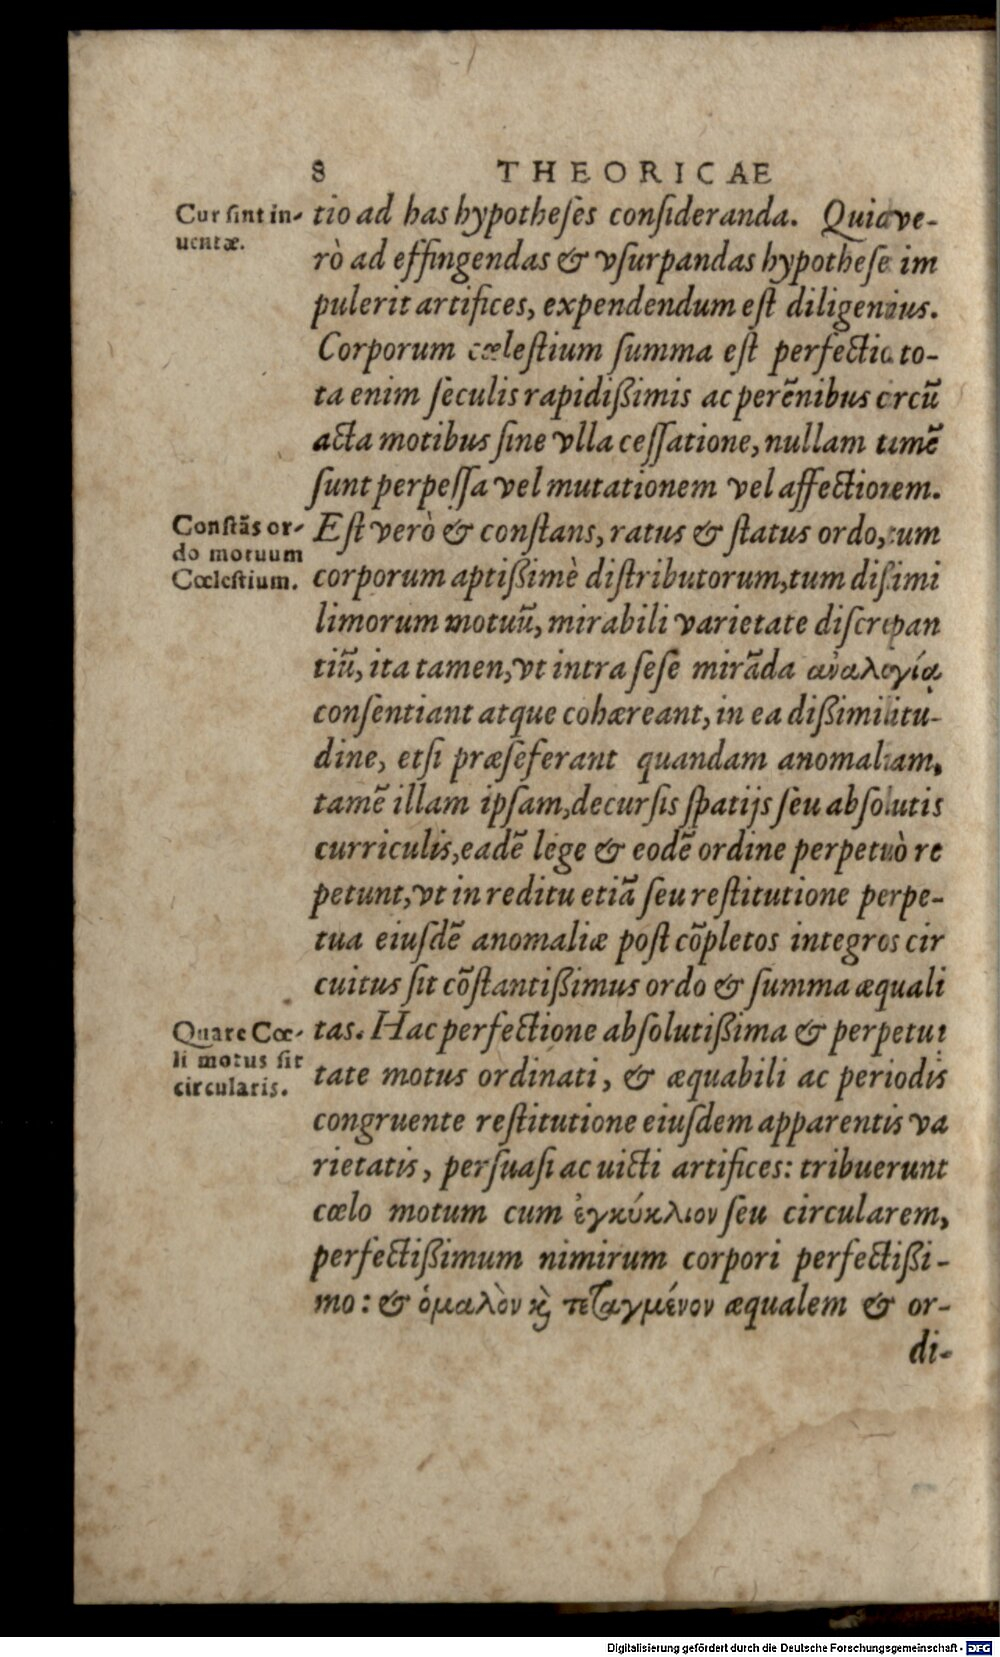 8 THEORICAE
Cur sint in-
uentæ.
tio ad has hypotheses consideranda. Quid ve-
rò ad effingendas & vsurpandas hypotheses im
pulerit artifices, expendendum est diligentius.
Corporum cœlestium summa est perfectio to-
ta enim seculis rapidißimis ac perẽnibus circũ
acta motibus sine vlla cessatione, nullam tamẽ
sunt perpessa vel mutationem vel affectionem.
Constãs or-
do motuum
Cœlestium.
Est verò & constans, ratus & status ordo, tum
corporum aptißimè distributorum, tum dissimi
limorum motuũ, mirabili varietate discrepan
tiũ, ita tamen, vt intra sese mirãda ἀναλογίᾳ
consentiant atque cohæreant, in ea dißimilitu-
dine, etsi præseferant quandam anomaliam,
tamẽ illam ipsam, decursis spatijs seu absolutis
curriculis, eadẽ lege & eodẽ ordine perpetuò re
petunt, vt in reditu etiã seu restitutione perpe-
tua eiusdẽ anomaliæ post cõpletos integros cir
cuitus sit cõstantißimus ordo & summa æquali
Quare Cœ-
li motus sit
circularis.
tas. Hac perfectione absolutißima & perpetui
tate motus ordinati, & æquabili ac periodis
congruente restitutione eiusdem apparentis va
rietatis, persuasi ac uicti artifices: tribuerunt
cœlo motum cum ἐγκύκλιον seu circularem,
perfectißimum nimirum corpori perfectißi-
mo: & ὁμαλὸν κὶ τεταγμένον æqualem & or-
di-
Digitalisierung gefördert durch die Deutsche Forschungsgemeinschaft - DFG